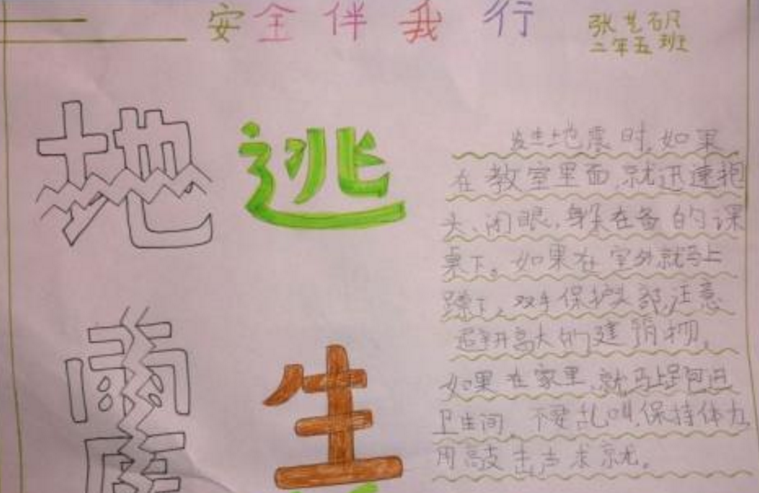 安全伴我行
张艺
二年五班
地逃
震生
发生地震时,如果
在教室里面,就迅速抱
头、闭眼,躲在各的课
桌下。如果在室外就马上
蹲下,双手保护头部,注意
避开高大的建筑物。
如果在家里,就马上跑进
卫生间,不要乱叫,保持体力
用敲击声求救。